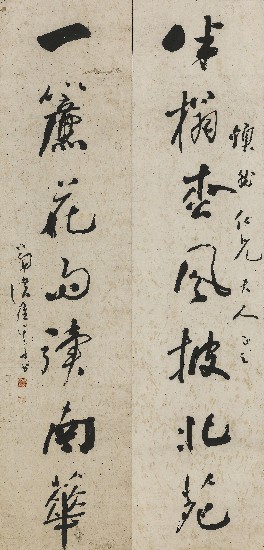 半榻枩風披北苑
仁兄大人正之
一簾花雨讀南華